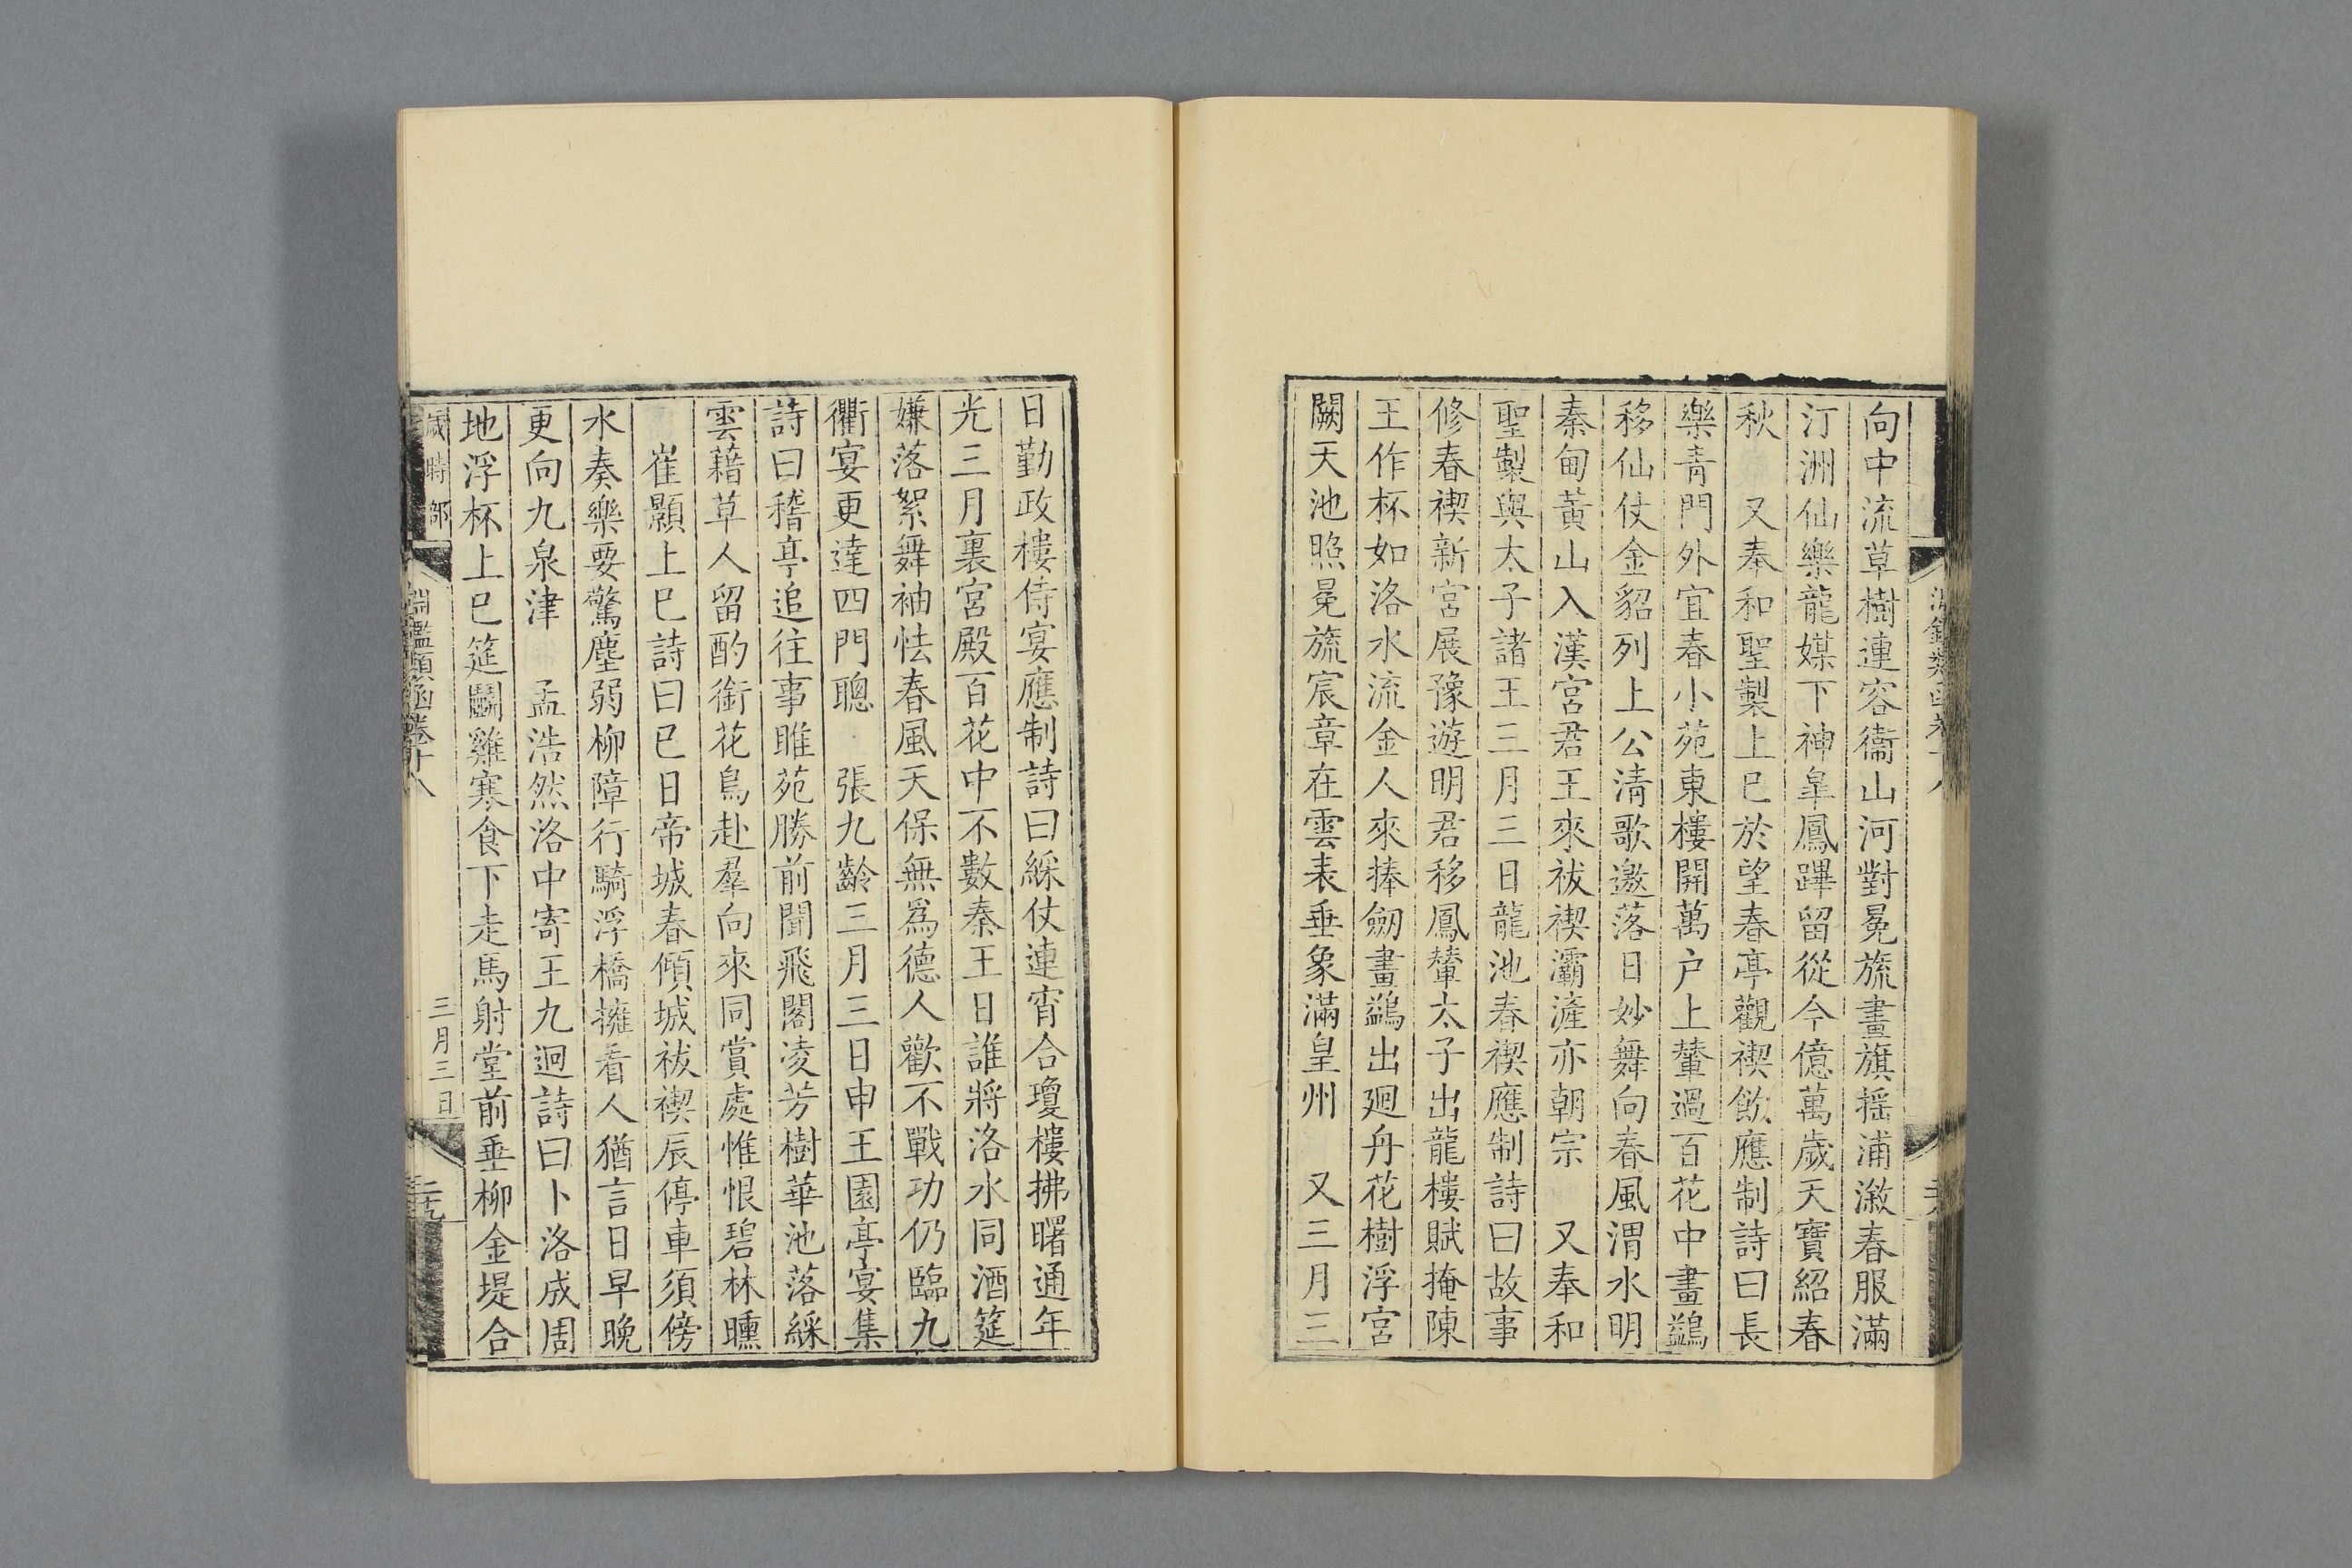 向中流草樹連容衞山河對冕旒畫旗摇浦溆春服滿
汀洲仙樂龍媒下神臯鳳蹕留從今億萬歲天寶紹春
秋　又奉和聖製上巳於望春亭觀禊飲應制詩曰長
樂青門外宜春小苑東樓開萬户上輦過百花中畫鷁
移仙仗金貂列上公清歌邀落日妙舞向春風渭水明
秦甸黃山入漢宮君王來祓禊灞滻亦朝宗　又奉和
聖製與太子諸王三月三日龍池春禊應制詩曰故事
修春禊新宮展豫遊明君移鳳輦太子出龍樓賦掩陳
王作杯如洛水流金人來捧劒畫鷁出廻舟花樹浮宮
闕天池照冕旒宸章在雲表垂象滿皇州　又三月三
日勤政樓侍宴應制詩曰綵仗連宵合瓊樓拂曙通年
光三月裏宮殿百花中不數秦王日誰將洛水同酒筵
嫌落絮舞袖怯春風天保無爲德人歡不戰功仍臨九
衢宴更達四門聰　張九齡三月三日申王園亭宴集
詩曰稽亭追往事睢苑勝前聞飛閣凌芳樹華池落綵
雲藉草人留酌銜花鳥赴羣向來同賞處惟恨碧林曛
崔顥上巳詩曰巳日帝城春傾城祓禊辰停車須傍
水奏樂要驚塵弱柳障行騎浮橋擁看人猶言日早晚
更向九泉津　孟浩然洛中寄王九迥詩曰卜洛成周
地浮杯上巳筵鬭雞寒食下走馬射堂前垂柳金堤合
歲時部　淵鑑類函卷十八　三月三日　三十九